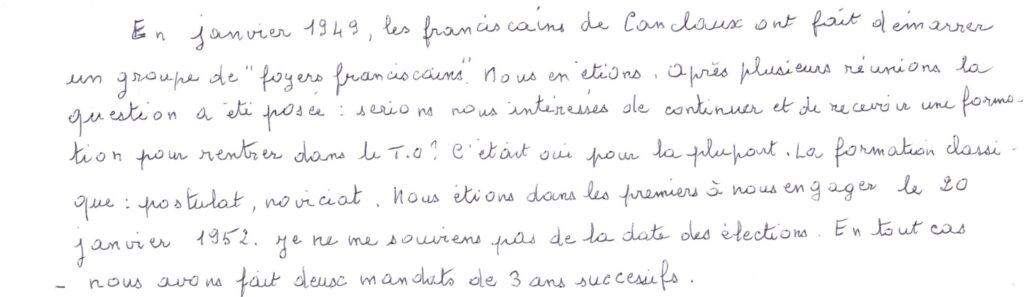 En janvier 1949, les franciscains de Canclaux ont fait démarrer
un groupe de "foyers franciscains". Nous en étions. Après plusieurs réunions la
question a été posée : serions nous intéressés de continuer et de recevoir une forma-
tion pour rentrer dans le T.O? C'était oui pour la plupart. La formation classi-
que : postulat, noviciat. Nous étions dans les premiers à nous engager le 20
janvier 1952. Je ne me souviens pas de la date des élections. En tout cas
- nous avons fait deux mandats de 3 ans succesifs.